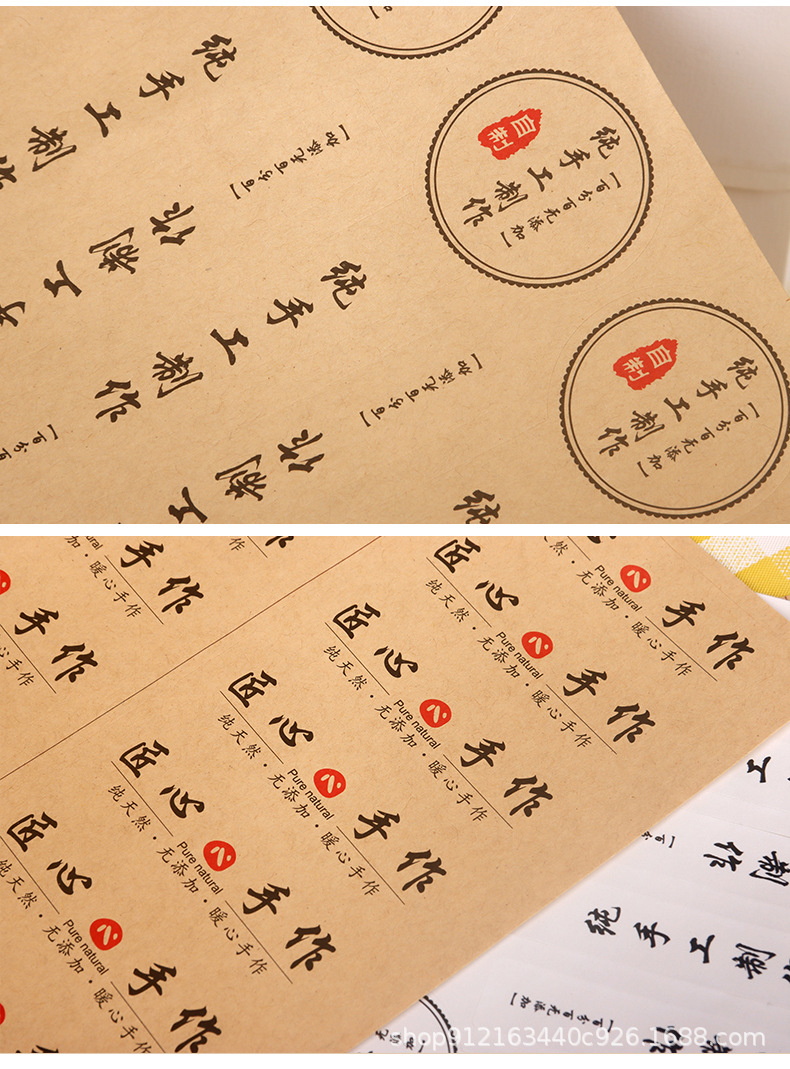 纯手工制作
[百分百无添加]
纯手工制作
[百分百无添加]
自制
纯手工制作
[百分百无添加]
自制
纯手工制作
[百分百无添加]
纯手工制作
纯
匠心 手作
Pure natural
纯天然·无添加·暖心手作
匠心 手作
Pure natural
纯天然·无添加·暖心手作
匠心 手作
Pure natural
纯天然·无添加·暖心手作
匠心 手作
Pure natural
纯天然·无添加·暖心手作
匠心 手作
Pure natural
纯天然·无添加·暖心手作
手作
暖心手作
手作
心手作
工制作
纯手工制作
[百分百无添加]
shop912163440c926.1688.com